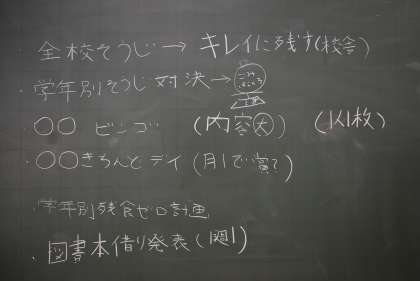 ・全校そうじ→キレイに残す(校舎)
・学年別そうじ対決→
・○○ ビンゴ (内容大) (1人1枚)
・○○きちんとデイ(月1で賞?)
・学年別残食ゼロ計画
・図書本借り発表(週1)